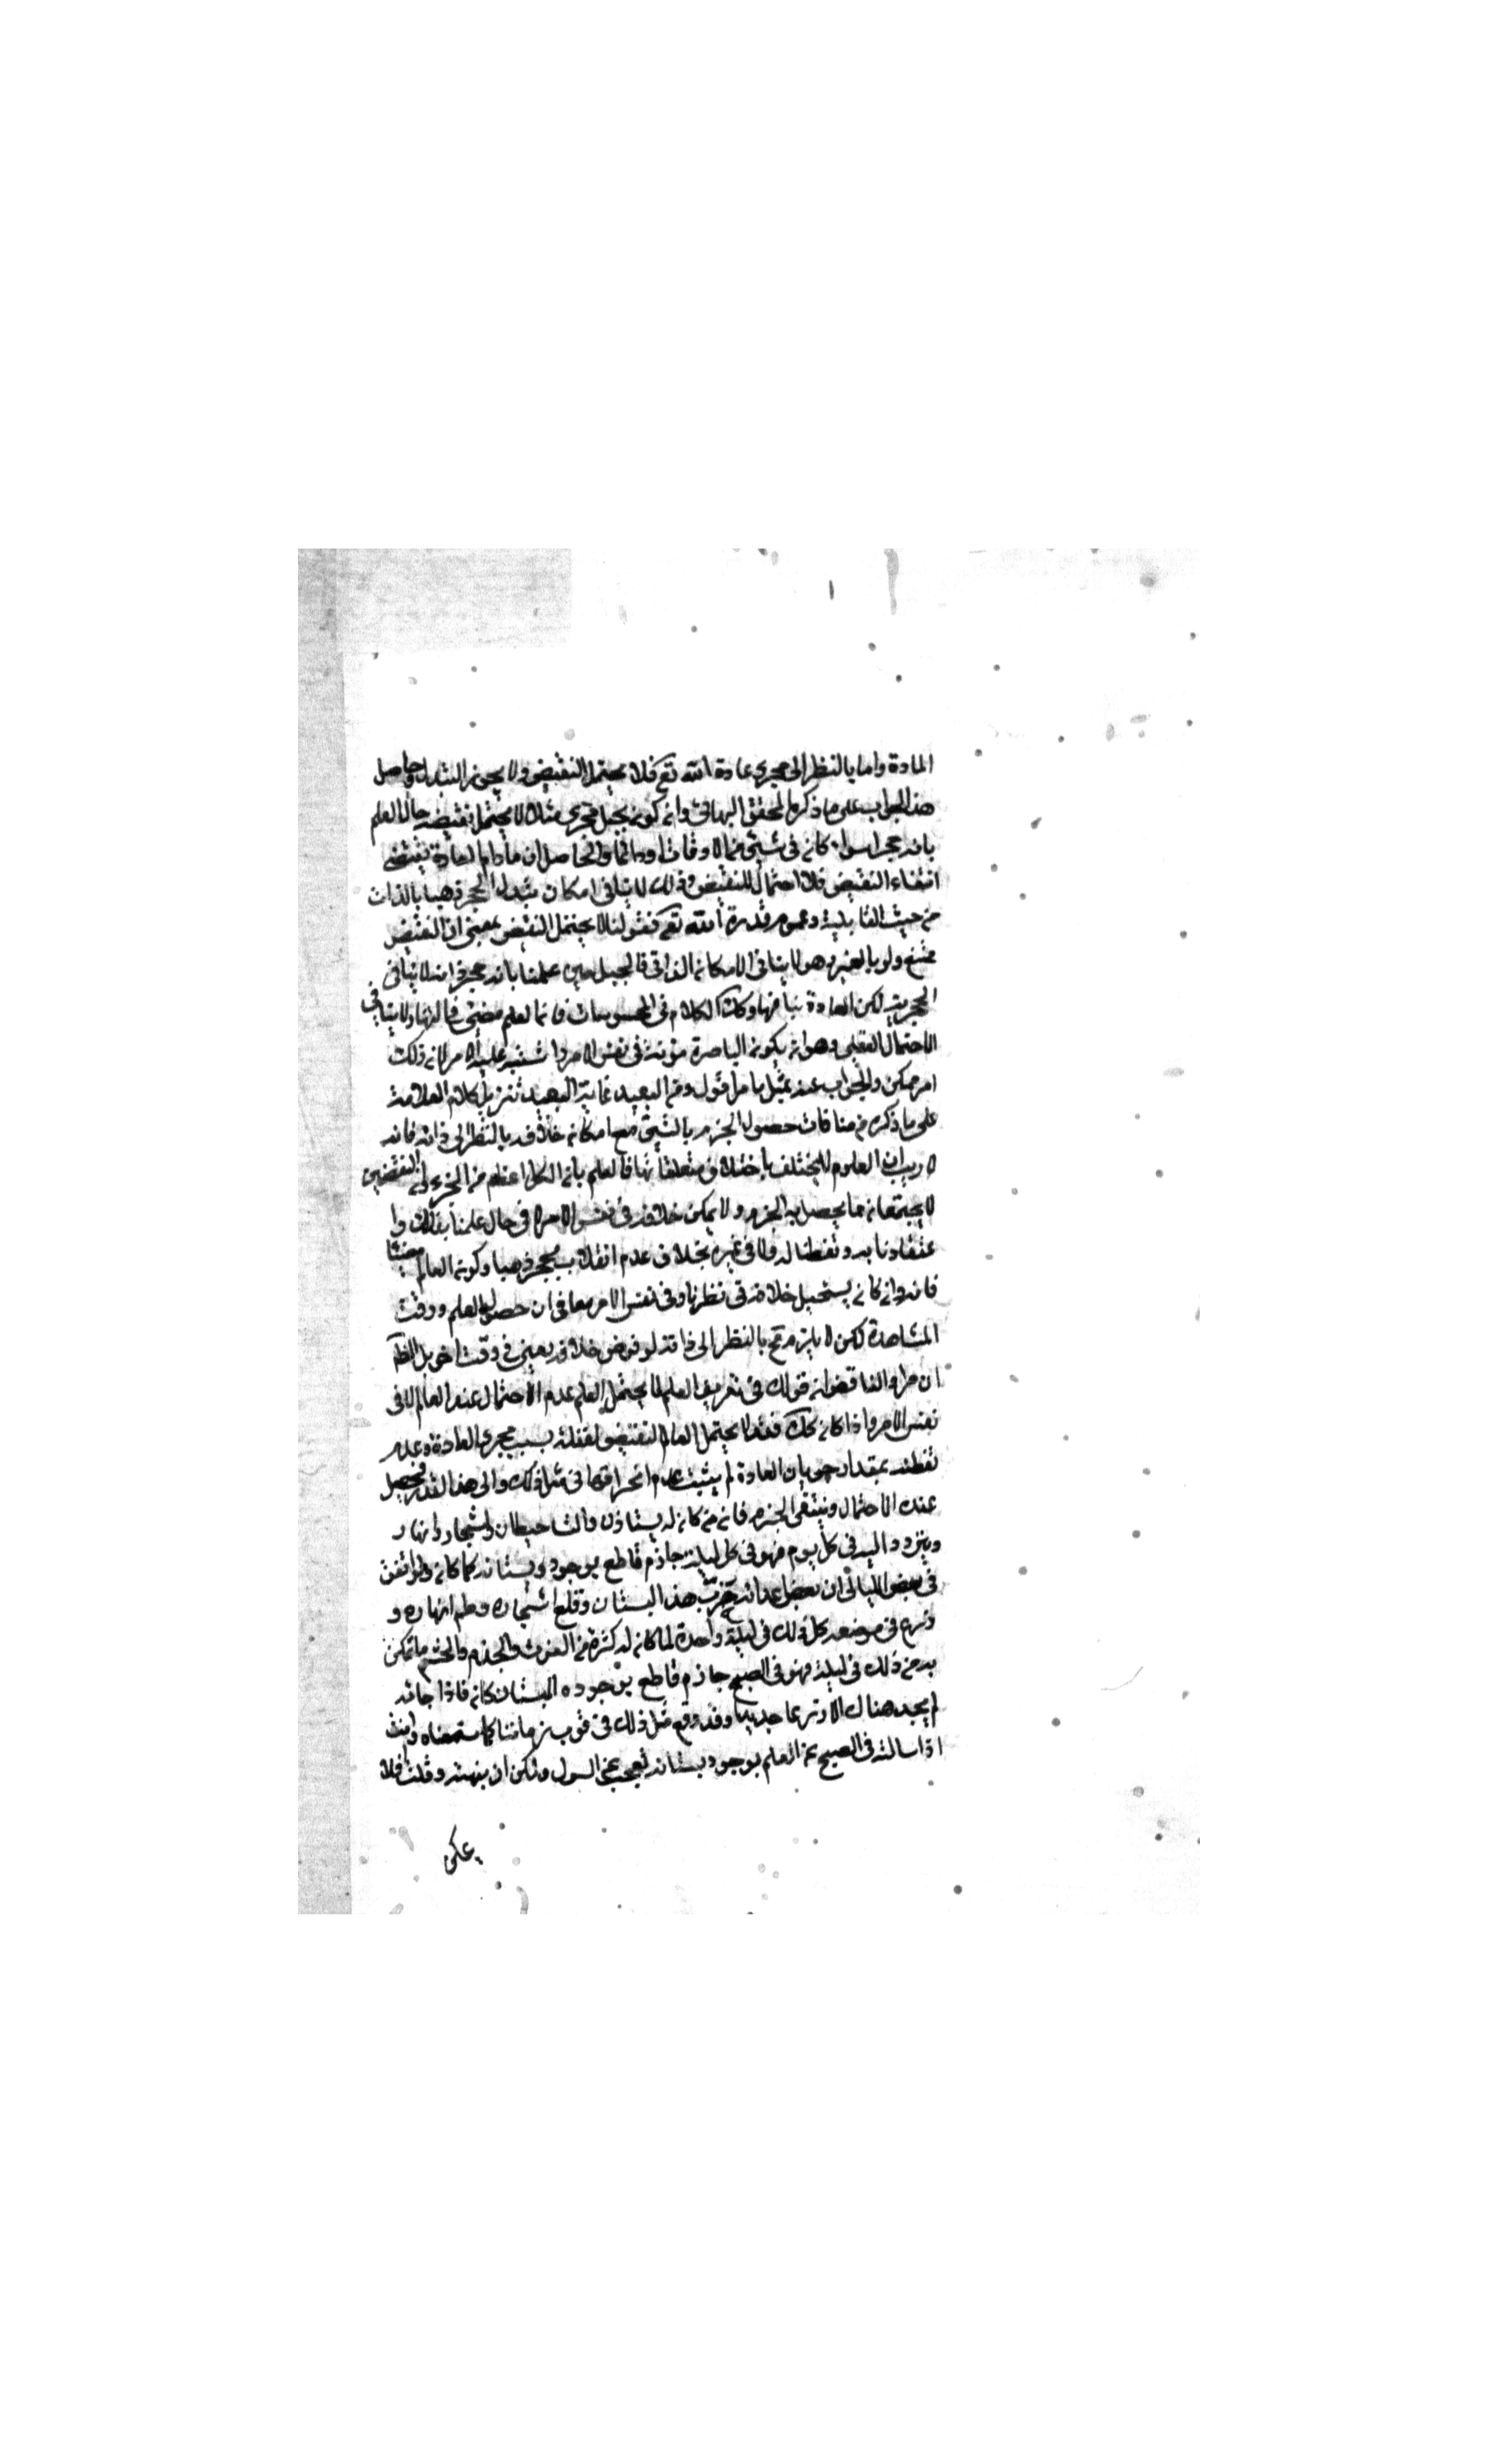 المادة واما بالنظر الى مجرى عادة الله تع فلا يحتمل النقيض ولا يجوز التبدل وحاصل
هذا الجواب على ما ذكره المحقق البهائى وان كون الجبل حجرى مثلا لا يحتمل نقيضه حال العلم
بانه حجر اسواء كان فى شىء من الاوقات او دائما والحاصل ان مادام العادة تقتضى
انتفاء النقيض فلا احتمال للنقيض وذلك لا ينافى امكان تبدل الحجر ذهبا بالذات
من حيث القابلية وعموم قدرة الله تع فقولنا لا يحتمل النقيض بمعنى ان النقيض
ممتنع ولو بالغير وهو لا ينافى الامكان الذاتى فالجبل حين علمنا بانه حجر امنه لا ينافى
الحجرية لكن العادة ينافيها وكك الكلام فى المحسوسات فان العلم مضئ فى النهار ولا ينافى
الاحتمال العقلى وهو ان يكون الباصرة مؤنة فى نفس الامر واشتبه عليه الامر لان ذلك
امر ممكن والجواب عنه بمثل ما مر اقول ومن البعيد غاية البعيد تنزيل كلام العلامة
على ما ذكره من منافات حصول الجزم بالشىء مع امكان خلافه بالنظر الى ذاته فانه
لا ريب ان العلوم يختلف باختلاف متعلقاتها فالعلم بان الكل اعظم من الجزء وان النقيضين
لا يجتمعان مما يحصل به الجزم ولا يمكن خلافه فى نفس الامر لا فى حال علمنا بذلك وا
عتقادنا به وتفطنا له ولا فى غيره بخلاف عدم انقلاب الحجر ذهبا وكون العالم مضيئا
فانه وان كان يستحيل خلافه فى نظرنا وفى نفس الامر معا فى ان حصول العلم ووقت
المشاهدة لكن لا يلزم مح بالنظر الى ذاته لو فرض خلافه يعنى فى وقت اخر بل الظ
ان مراد الناقض ان قولك فى تعريف العلم لا يحتمل العلم عدم الاحتمال عند العالم لا فى
نفس الامر واذا كان كك فقد لا يحتمل العالم النقيض لغفلة بسبب مجرى العادة وعدم
تفطنه بمقدار جريان العادة لم يثبت عدم انحرافها فى مثل ذلك والى هذا القدر فيحصل
عنده الاحتمال وينتفى الجزم فان من كان له بستان ذات حيطان واشجار وانهار
ويتردد اليه فى كل يوم فهو فى كل ليلة جازم قاطع بوجود بستانه كما كان ولو اتفق
فى بعض الليالى ان بعض اعدائه خرب هذا البستان وقلع اشجاره وطم انهاره و
زرع فى موضعه كل ذلك فى ليلة واحدة لما كان له كثرة من العزت والخدم والحشم ما تمكن
به من ذلك فى ليلة فهو فى الصبح جازم قاطع بوجوده البستان كان فاذا جائه
لم يجد هناك الا زرعا جديدا وقد وقع مثل ذلك فى قرب زماننا كما سمعناه وانت
اذا سالته فى الصبح عن العلم بوجود بستانه تعجب عن السول ولكن ان بنهته وقلت فلا
يمكن